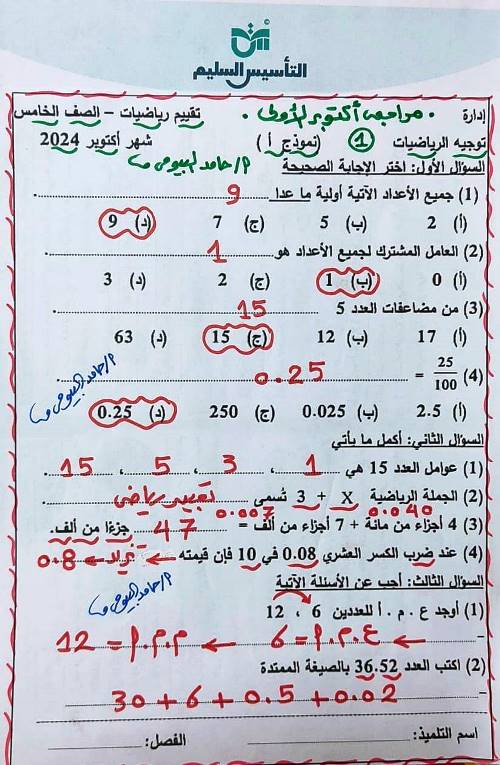 التأسيس السليم
إدارة
مراجعة أكتوبر الأولى
تقييم رياضيات – الصف الخامس
توجيه الرياضيات
1
(نموذج أ )
شهر أكتوبر 2024
السؤال الأول: اختر الإجابة الصحيحة
(1) جميع الأعداد الآتية أولية ما عدا 9
(أ) 2 (ب) 5 (ج) 7 (د) 9
(2) العامل المشترك لجميع الأعداد هو 1
(أ) 0 (ب) 1 (ج) 2 (د) 3
(3) من مضاعفات العدد 5 15
(أ) 17 (ب) 12 (ج) 15 (د) 63
(4) 25/100 = 0.25
(أ) 2.5 (ب) 0.025 (ج) 250 (د) 0.25
السؤال الثاني: أكمل ما يأتي
(1) عوامل العدد 15 هي 1 ، 3 ، 5 ، 15
(2) الجملة الرياضية X + 3 تسمى تعبير رياضى
0.040 0.007
(3) 4 أجزاء من مائة + 7 أجزاء من ألف = 47 جزءًا من ألف.
(4) عند ضرب الكسر العشري 0.08 في 10 فإن قيمته ← تزداد ← 0.8
السؤال الثالث: أجب عن الأسئلة الآتية
(1) أوجد ع . م . أ للعددين 6 ، 12
← ع.م.أ = 6 ← م.م.أ = 12
(2) اكتب العدد 36.52 بالصيغة الممتدة
30 + 6 + 0.5 + 0.02
اسم التلميذ: الفصل: